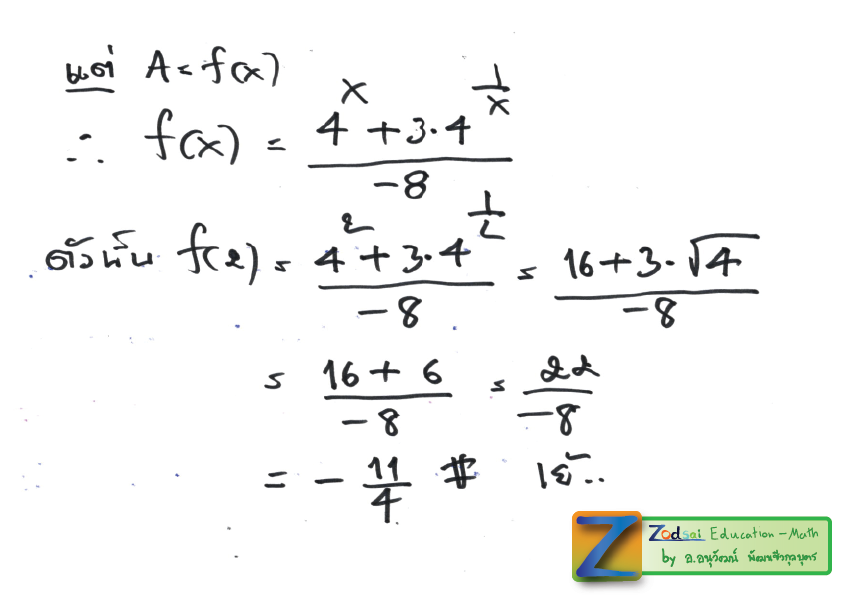 แต่ A = f(x)
∴ f(x) = (4^x + 3·4^(1/x)) / -8
ดังนั้น f(2) = (4^2 + 3·4^(1/2)) / -8 = (16 + 3·√4) / -8
= (16 + 6) / -8 = 22 / -8
= - 11/4 # เย้..
Zodsai Education - Math
by อ.อนุวัฒน์